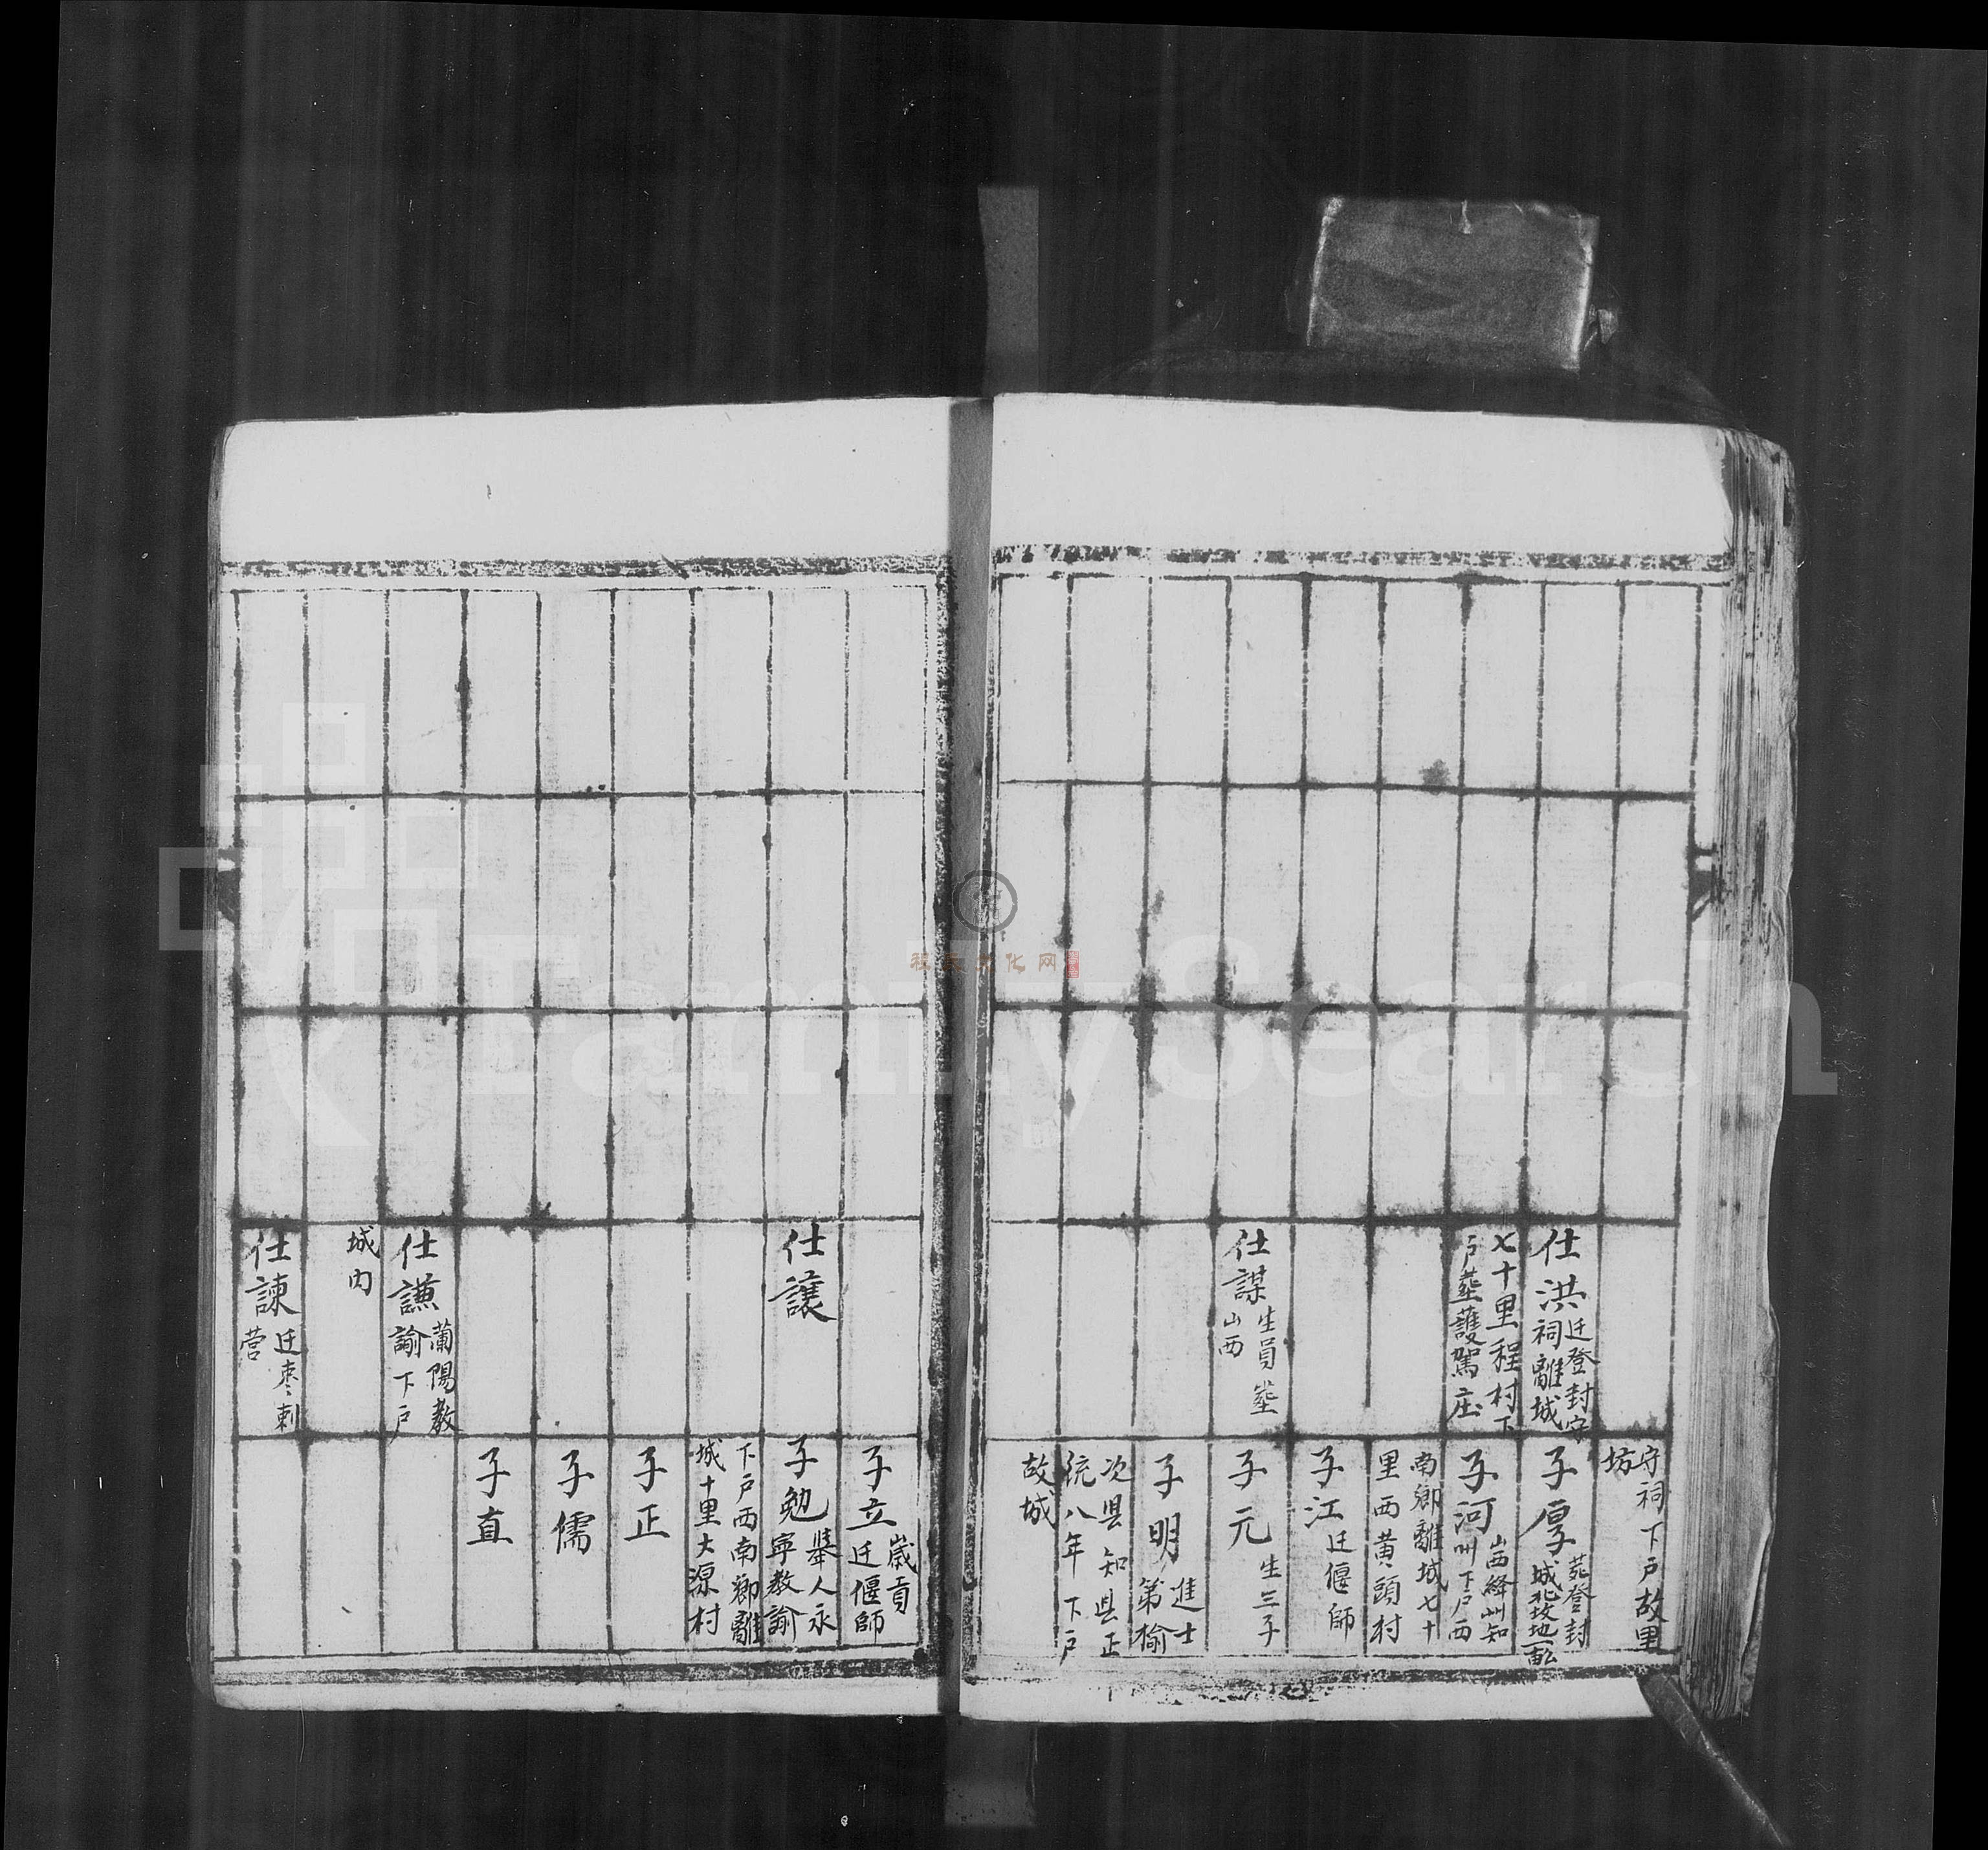 仕洪
迁登封守
祠離城
七十里程村下
户塟護駕庄
仕謀
生員塟
山西
守祠下户故里
坊
子厚
苑登封
城北坟地一畝
子河
山西絳州知
州下户西
南鄉離城七十
里西黄頭村
子江
迁偃師
子元
生三子
子明
進士
第榆
次县知县正
统八年下户
故城
仕讓
仕謙
蘭陽教
諭下户
城内
仕諫
迁枣刺
营
子立
歲貢
迁偃師
子勉
舉人永
寕教諭
下户西南鄉離
城十里大源村
子正
子儒
子直
FamilySearch
程氏文化网